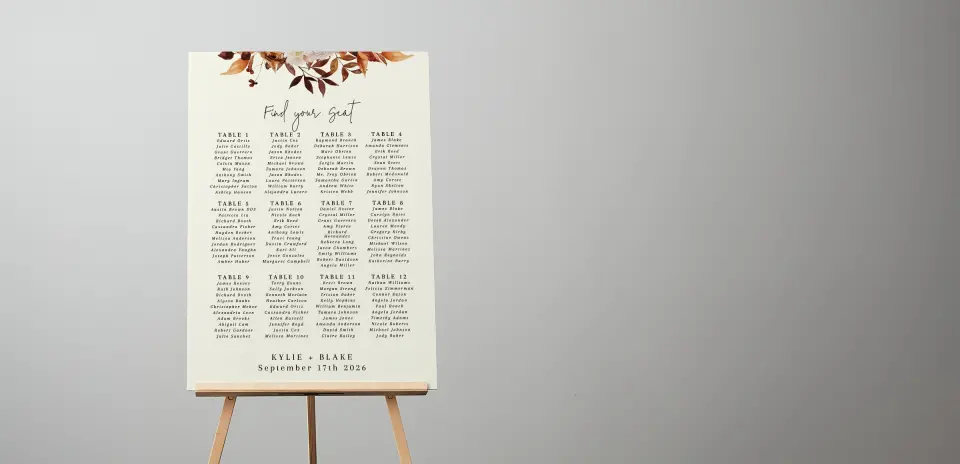 Find your seat
TABLE 1
Edward Ortiz
Julie Castillo
Grant Guerrero
Bridget Thomas
Calvin Mason
Meg Yang
Anthony Smith
Mary Ingram
Christopher Sutton
Ashley Hanson
TABLE 2
Justin Cox
Jody Baker
Jason Rhodes
Erica Jensen
Michael Brown
Tamara Johnson
Jason Rhodes
Laura Patterson
William Barry
Alejandra Lucero
TABLE 3
Raymond Branch
Deborah Harrison
Marc Obrien
Stephanie Lewis
Sergio Martin
Deborah Brown
Ms. Troy Obrien
Samantha Garcia
Andrew White
Kristen Webb
TABLE 4
James Blake
Amanda Clements
Erik Reed
Crystal Miller
Sean Bates
Deanna Thomas
Robert Mcdonald
Amy Cortez
Ryan Shelton
Jennifer Johnson
TABLE 5
Austin Brown DDS
Patricia Liu
Richard Booth
Cassandra Fisher
Hayden Becker
Melissa Anderson
Jordan Rodriguez
Alexandra Vaughn
Joseph Patterson
Amber Huber
TABLE 6
Justin Nelson
Nicole Koch
Erik Reed
Amy Cortez
Anthony Lewis
Traci Young
Dustin Crawford
Kari Ali
Jesse Gonzales
Margaret Campbell
TABLE 7
Daniel Hester
Crystal Miller
Grant Guerrero
Amy Pierce
Richard
Hernandez
Rebecca Long
Jacob Chambers
Emily Williams
Robert Davidson
Angela Miller
TABLE 8
James Blake
Carolyn Bates
Derek Alexander
Lauren Moody
Gregory Kirby
Christine Owens
Michael Wilson
Melissa Martinez
John Reynolds
Katherine Barry
TABLE 9
James Reeves
Ruth Johnson
Richard Booth
Alyson Banks
Christopher Mckee
Alexandria Leon
Adam Brooks
Abigail Cam
Robert Gardner
Julie Sanchez
TABLE 10
Terry Evans
Sally Jackson
Kenneth Morison
Heather Carlson
Edward Ortiz
Cassandra Fisher
Allen Russell
Jennifer Boyd
Justin Cox
Melissa Martinez
TABLE 11
Scott Brown
Morgan Strong
Tristan Baker
Kelly Hopkins
William Benjamin
Tamara Johnson
James Jones
Amanda Anderson
David Smith
Claire Bailey
TABLE 12
Nathan Williams
Felicia Zimmerman
Connor Eaton
Angela Jordan
Paul Roach
Angela Jordan
Timothy Adams
Nicole Roberts
Michael Johnson
Jody Baker
KYLIE + BLAKE
September 17th 2026